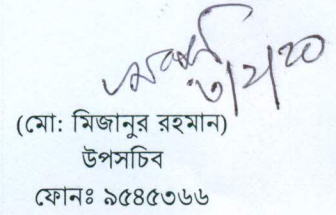 ৩/২/২০
(মো: মিজানুর রহমান)
উপসচিব
ফোনঃ ৯৫৪৫৩৬৬